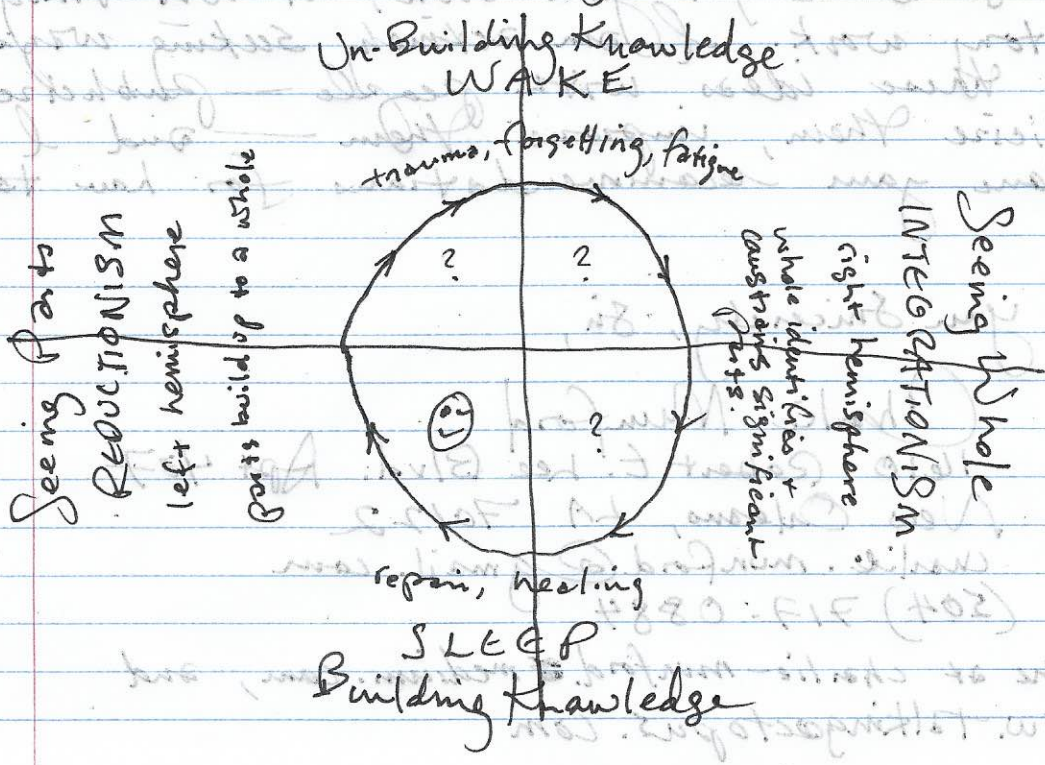 Un-Building Knowledge
WAKE
trauma, forgetting, fatigue
Seeing Parts
REDUCTIONISM
left hemisphere
parts build up to a whole
? ?
?
Seeing Whole
INTEGRATIONISM
right hemisphere
whole identifies +
significant
parts.
repair, healing
SLEEP
Building Knowledge